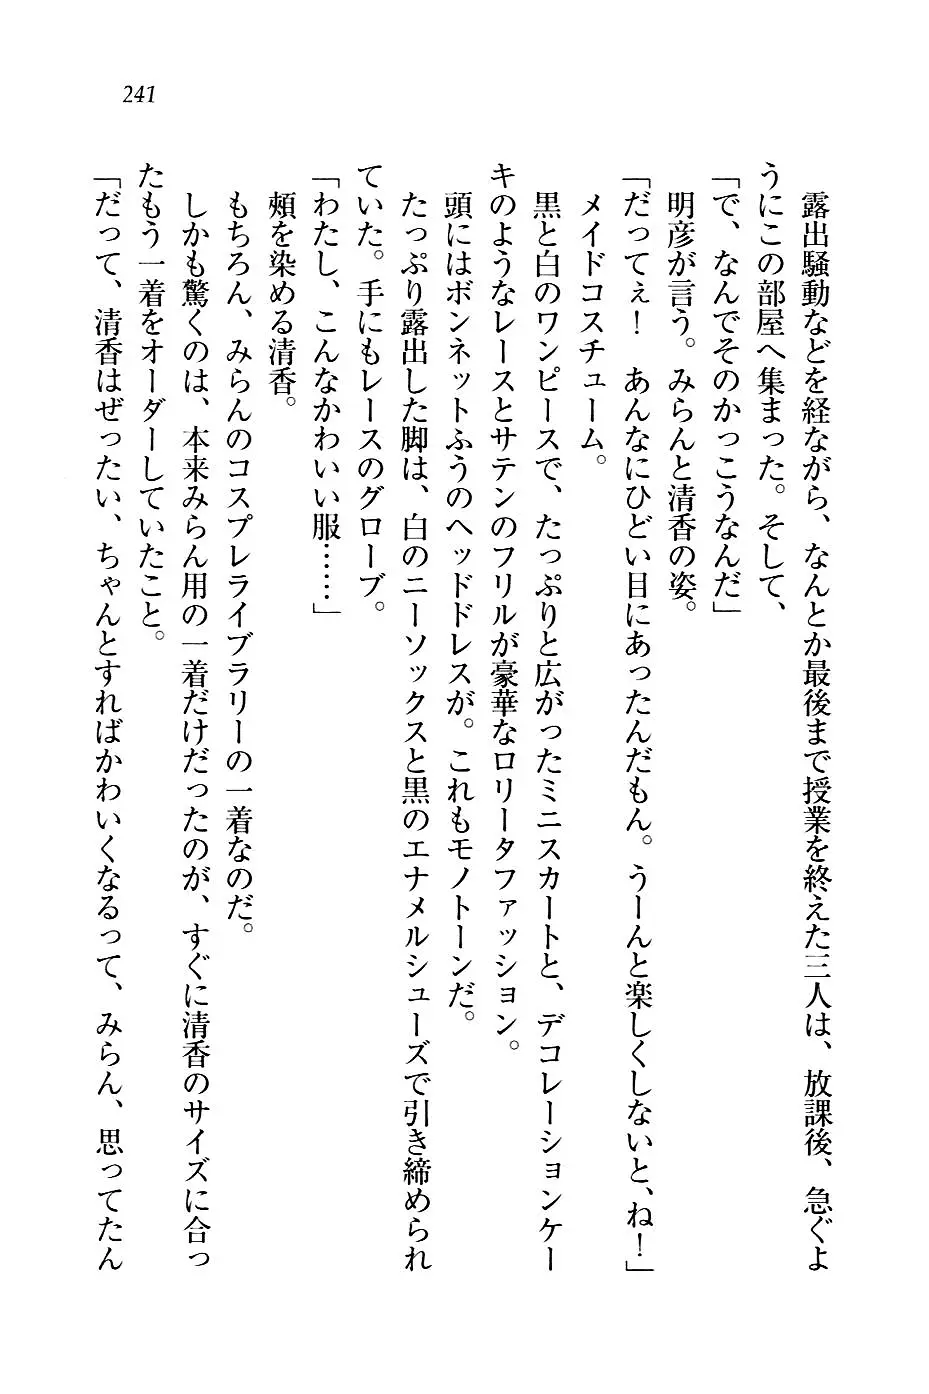 241
露出騒動などを経ながら、なんとか最後まで授業を終えた三人は、放課後、急ぐよ
うにこの部屋へ集まった。そして、
「で、なんでそのかっこうなんだ」
明彦が言う。みらんと清香の姿。
「だってぇ！　あんなにひどい目にあったんだもん。うーんと楽しくしないと、ね！」
メイドコスチューム。
黒と白のワンピースで、たっぷりと広がったミニスカートと、デコレーションケー
キのようなレースとサテンのフリルが豪華なロリータファッション。
頭にはボンネットふうのヘッドドレスが。これもモノトーンだ。
たっぷり露出した脚は、白のニーソックスと黒のエナメルシューズで引き締められ
ていた。手にもレースのグローブ。
「わたし、こんなかわいい服……」
頬を染める清香。
もちろん、みらんのコスプレライブラリーの一着なのだ。
しかも驚くのは、本来みらん用の一着だけだったのが、すぐに清香のサイズに合っ
たもう一着をオーダーしていたこと。
「だって、清香はぜったい、ちゃんとすればかわいくなるって、みらん、思ってたん